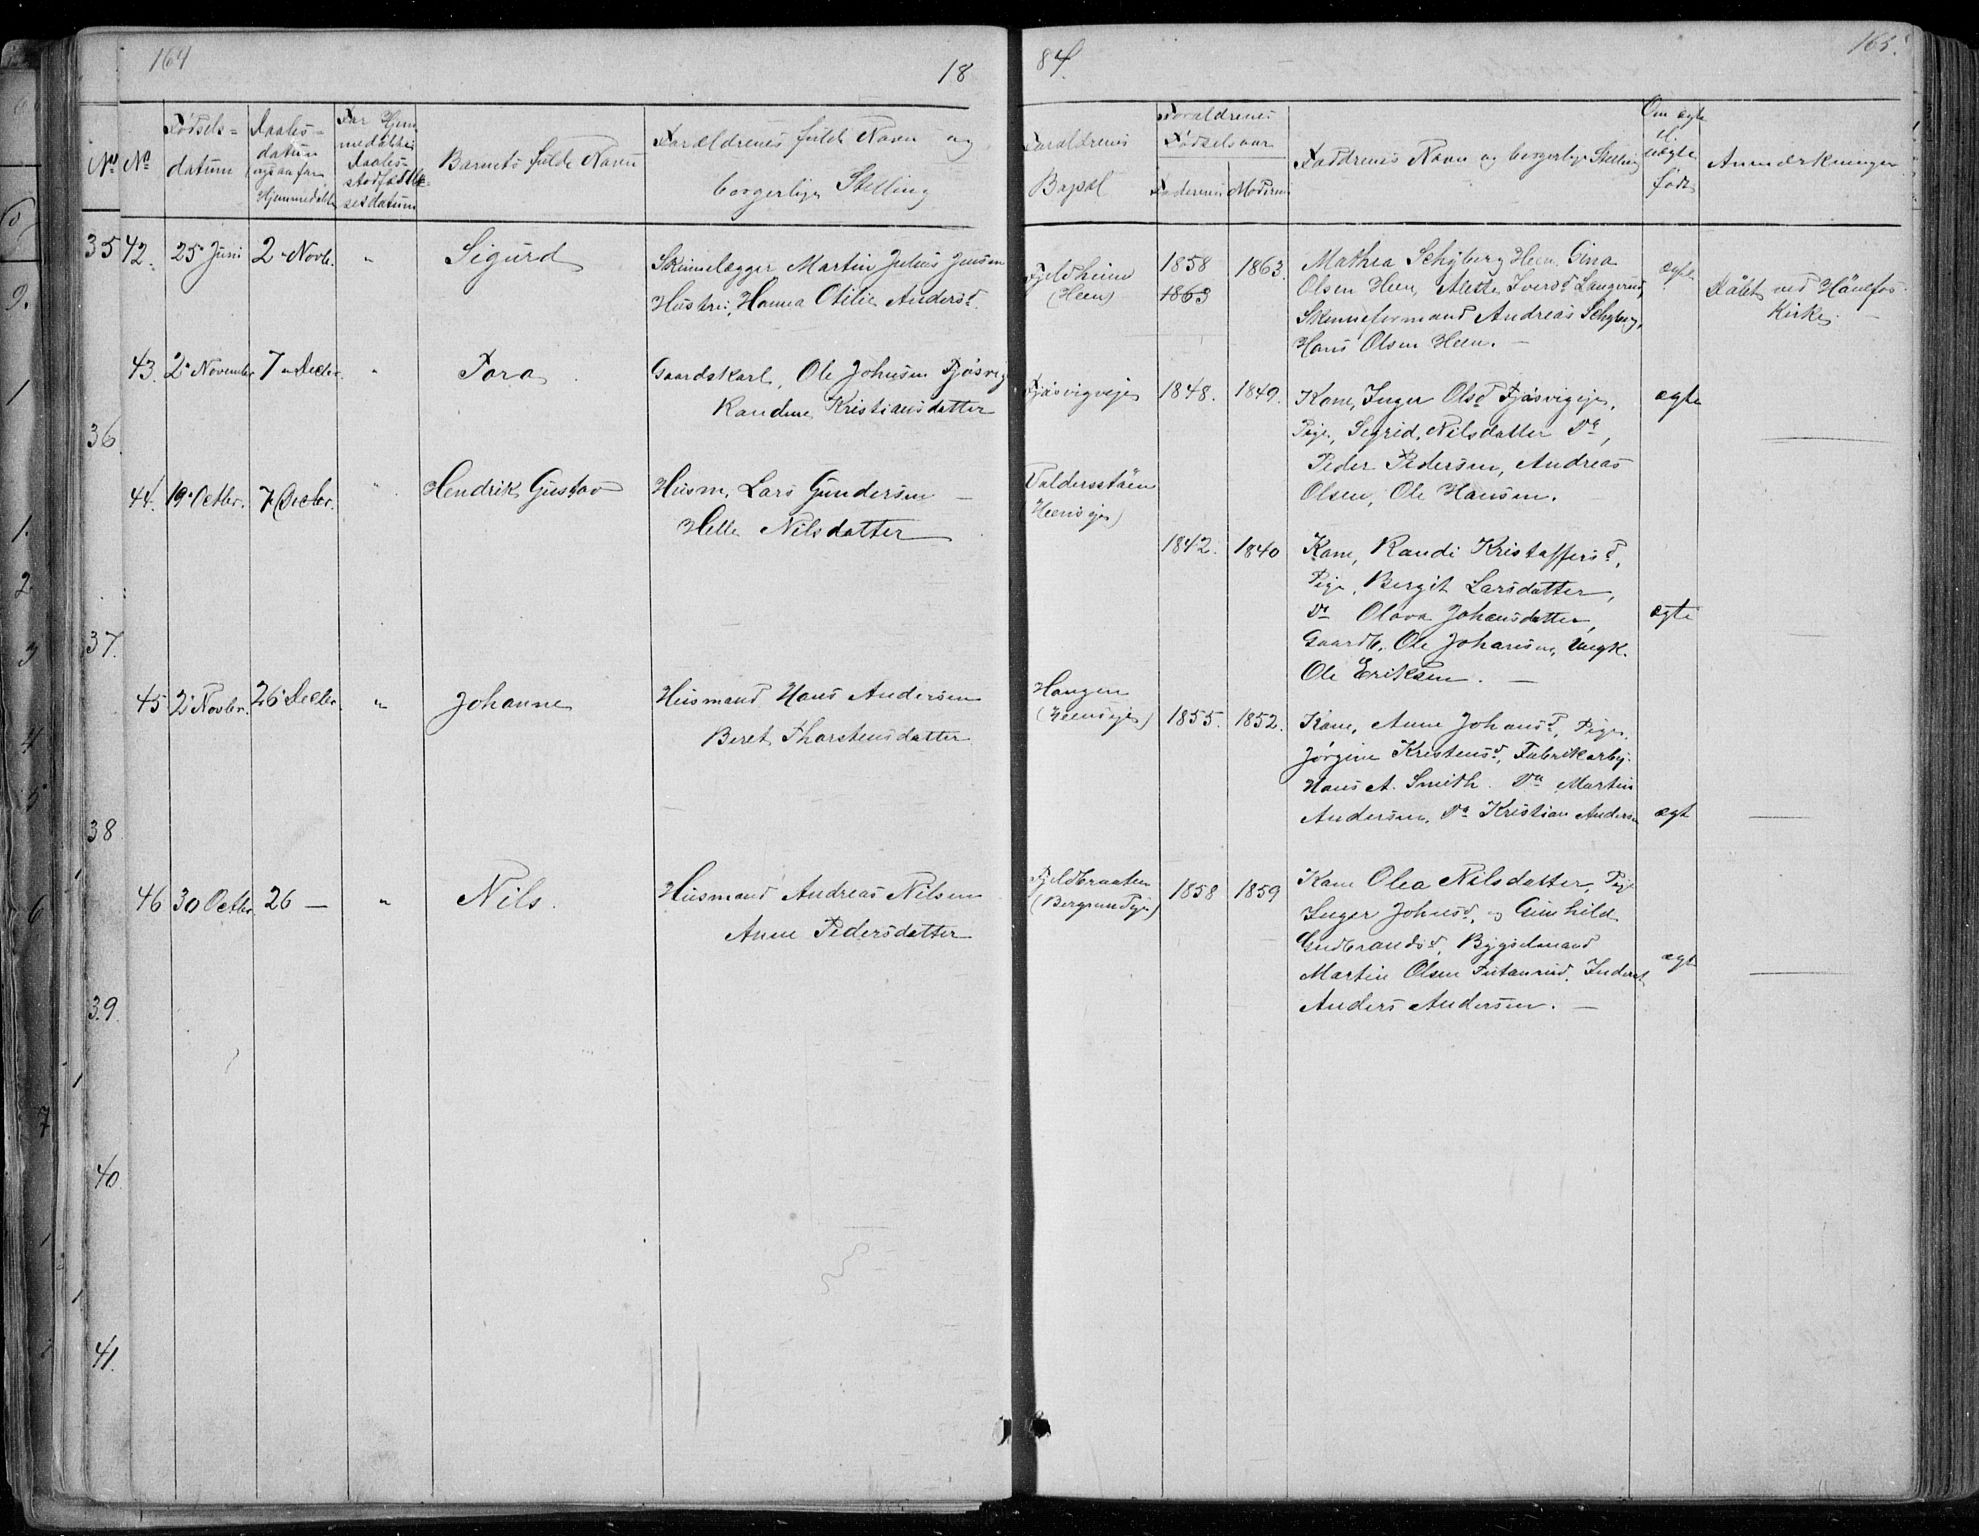 164
18
84.
165.
No No
Fødsels-
datum
Daabs-
datum
Hjemmedaab
For Hjem
medøbte
Daabs-
Barnets fulde Navn
Forældrenes fulde Navn og
borgerlige Stilling
Forældrenes
Bopæl
Forældrenes
Fødselsaar
Faderens Moderens
Faddrenes Navn og borgerlige Stilling
Om ægte
el.
uægte
født
Anmærkninger
35 42. 25 Juni 2 Novb. " Sigurd
Skinnelægger Martin Julius Jensen
Hustru, Hanna Otilie Andersd.
Fjeldheim
(Heen)
1858
1863
1863.
Mathea Schyberg Heen. Gina
Olsen Heen, Alette Iversd. Langerud,
Skinneformand Andreas Schyberg,
Hans Olsen Heen. —
ægte
Døbt ved Hønefos
Kirke. —
43. 2 November 7 Decbr. " Tora
Gaardskarl, Ole Johnsen Tjøsvig
Randine Kristiansdatter
Tjøsvigveje
1848. 1849.
Kone, Inger Olsd. Tjøsvigeje,
Pige, Segrid Nilsdatter Do,
Peder Pedersen, Andreas
Olsen, Ole Hansen.
ægte
36.
44. 19 Octbr. 7 Decbr. " Hendrik Gustav
Husm. Lars Gundersen —
Helle Nilsdatter
Valdersstøen
(Heenseje)
1842. 1840
Kone, Randi Kristoffersd.,
Pige, Bergit Larsdatter,
Do Olava Johansdatter,
Gaardb. Ole Johansen, Ungk.
Ole Eriksen. —
ægte
37.
45 2 Novbr. 26 Decbr. " Johanne
Husmand Hans Andersen
Beret Thorstensdatter
Haugen
(Heenseje)
1855. 1852.
Kone, Anne Johansd., Pige,
Jørgine Kristensd., Fabrikarb.
Hans A. Smith. Do Martin
Andersen, Do Kristian Andersen
ægte
38
46 30 Octbr. 26 — " Nils.
Husmand Andreas Nilsen
Anne Pedersdatter
Fjeldbraaten
1858 1859
Kone Olea Nilsdatter, Pige
Inger Johnsd., og Gunhild
Gudbrandsd, Bygselmand
Martin Olsen Inderst
Anders Andersen. —
ægte
39.
40
41.